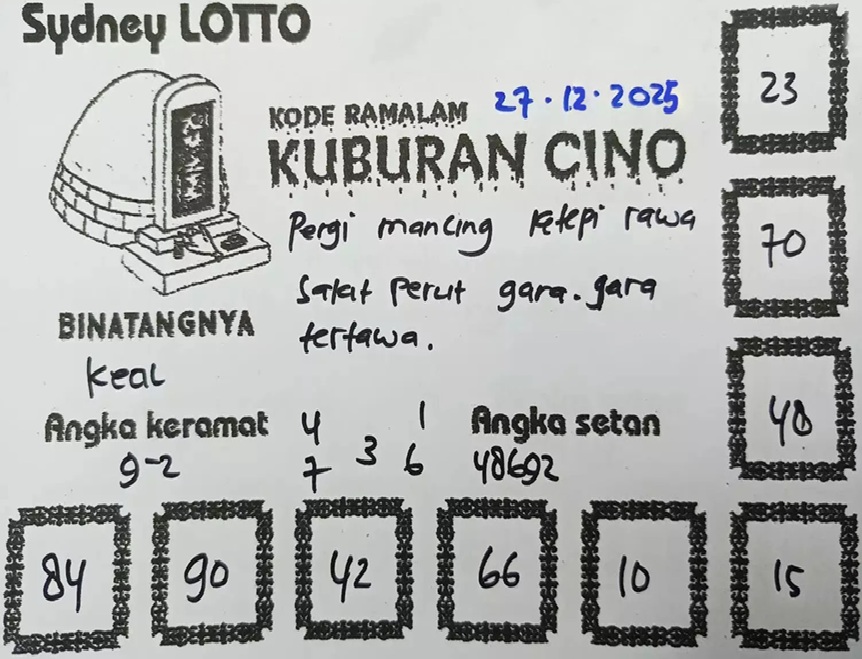 Sydney LOTTO
KODE RAMALAM 27.12.2025
KUBURAN CINO
Pergi mancing Ketepi rawa
Sakit perut gara.gara
tertawa.
BINATANGNYA
Keal
Angka keramat
9-2
4 1
3
7 6
Angka setan
48692
23
70
48
84 90 42 66 10 15